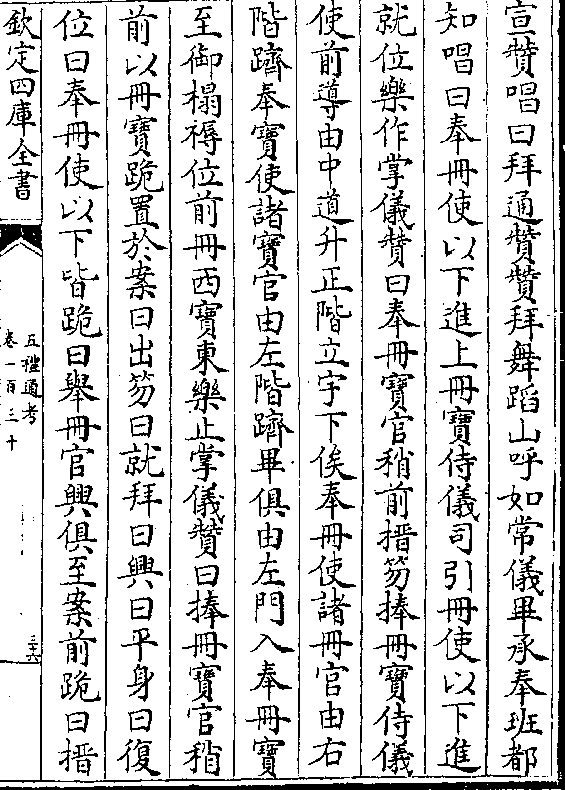 宣贊唱曰拜通贊贊拜舞蹈山呼如常儀畢承奉班都
知唱曰奉冊使以下進上冊寶侍儀司引冊使以下進
就位樂作掌儀贊曰奉冊寶官稍前搢笏捧冊寶侍儀
使前導由中道升正階立宇下俟奉冊使諸冊官由右
階躋奉寶使諸寶官由左階躋畢俱由左門入奉冊寶
至御榻褥位前冊西寶東樂止掌儀贊曰捧冊寶官稍
前以冊寶跪置於案曰出笏曰就拜曰興曰平身曰復
位曰奉冊使以下皆跪曰舉冊官興俱至案前跪曰搢
欽定四庫全書
五禮通考
卷一百三十
三六